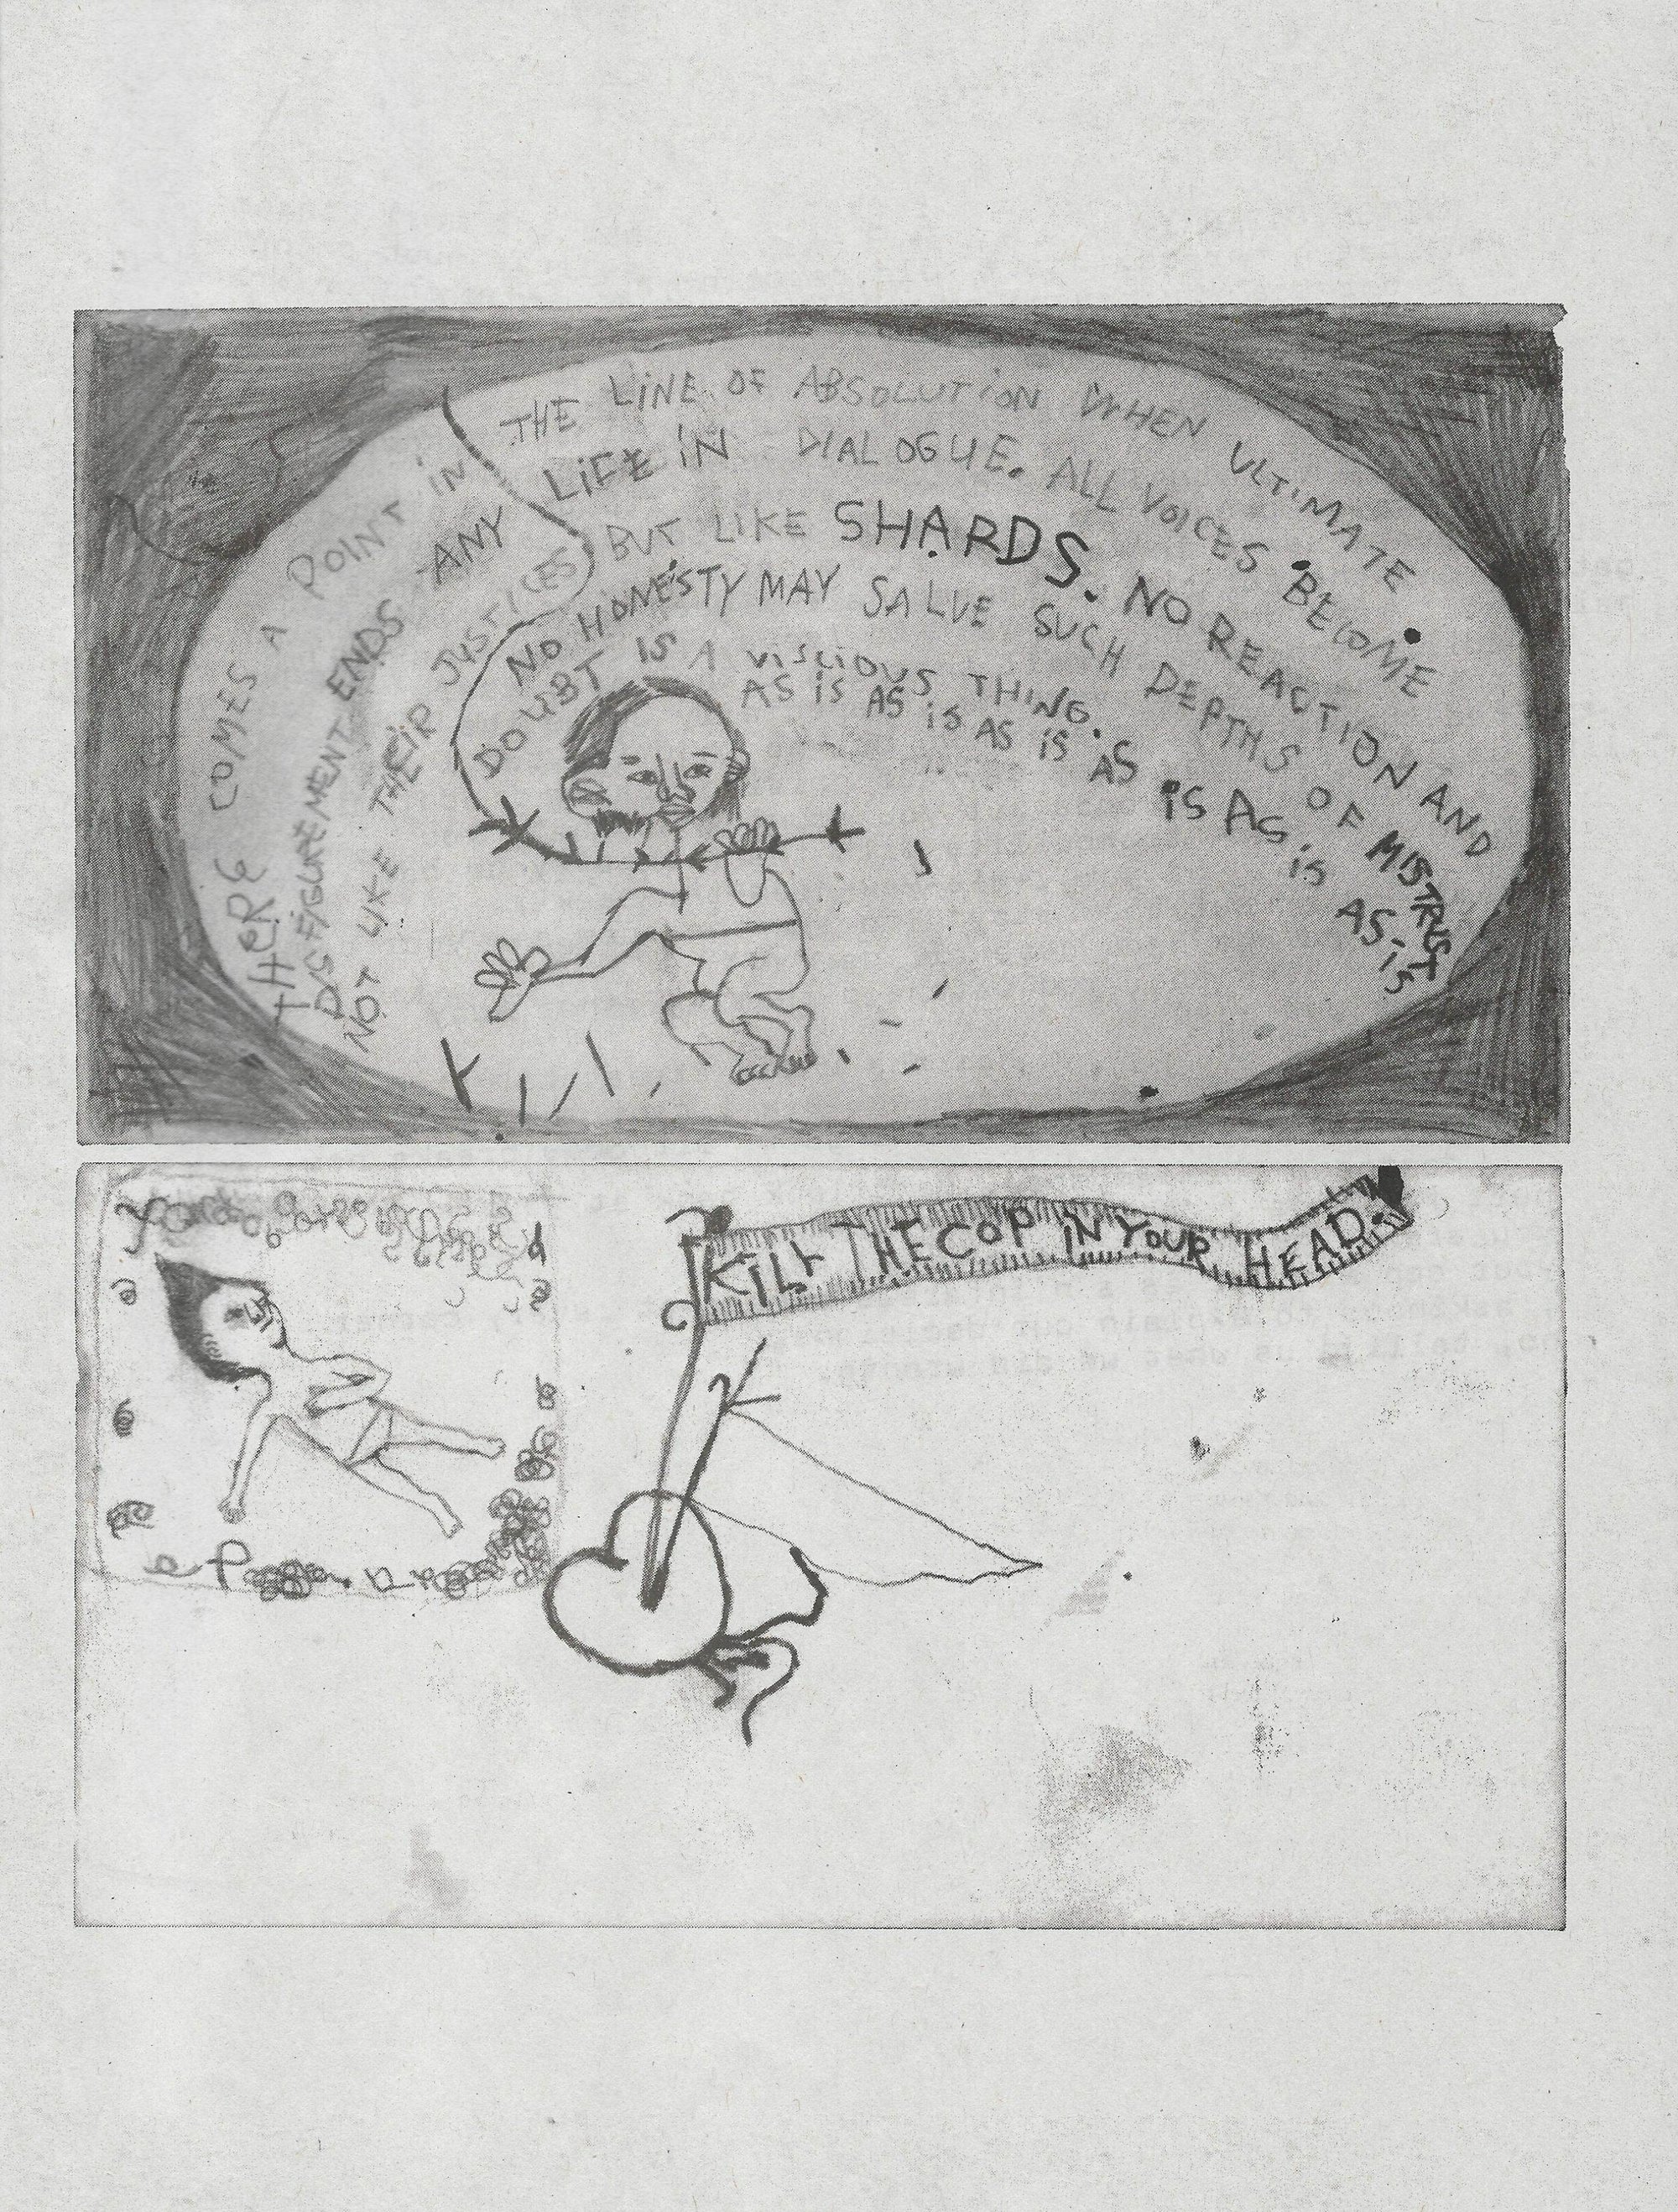 THERE COMES A POINT IN THE LINE OF ABSOLUTION WHEN ULTIMATE
DISFIGUREMENT ENDS ANY LIFE IN DIALOGUE. ALL VOICES BECOME
NOT LIKE THEIR JUSTICES BUT LIKE SHARDS. NO REACTION AND
NO HONESTY MAY SALVE SUCH DEPTHS OF MISTRUST
DOUBT IS A VISCIOUS THING.
AS IS AS IS AS IS AS IS AS IS AS IS
KILL THE COP IN YOUR HEAD.